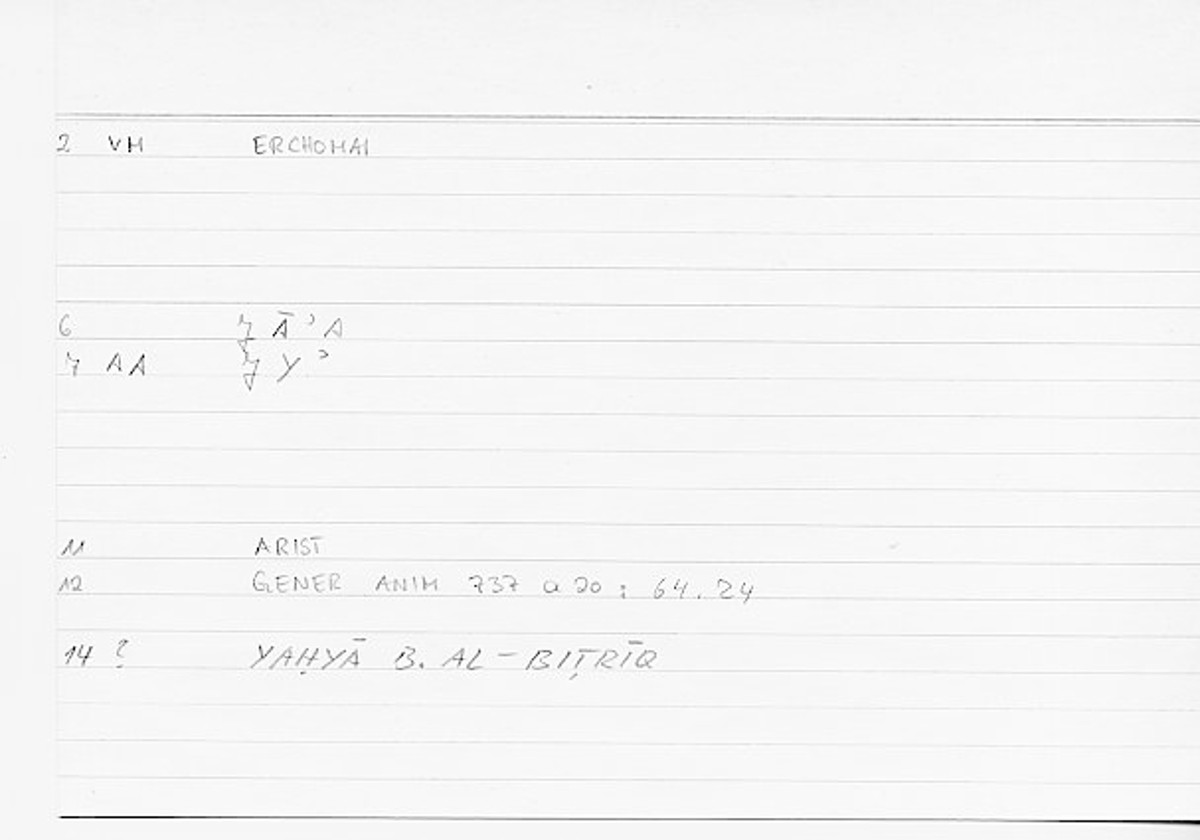 2 VM ERCHOMAI
6 J Ā ʾ A
7 AA J Y ʾ
11 ARIST
12 GENER ANIM 737 a 20 : 64.24
14 ? YAḤYĀ B. AL-BIṬRĪQ